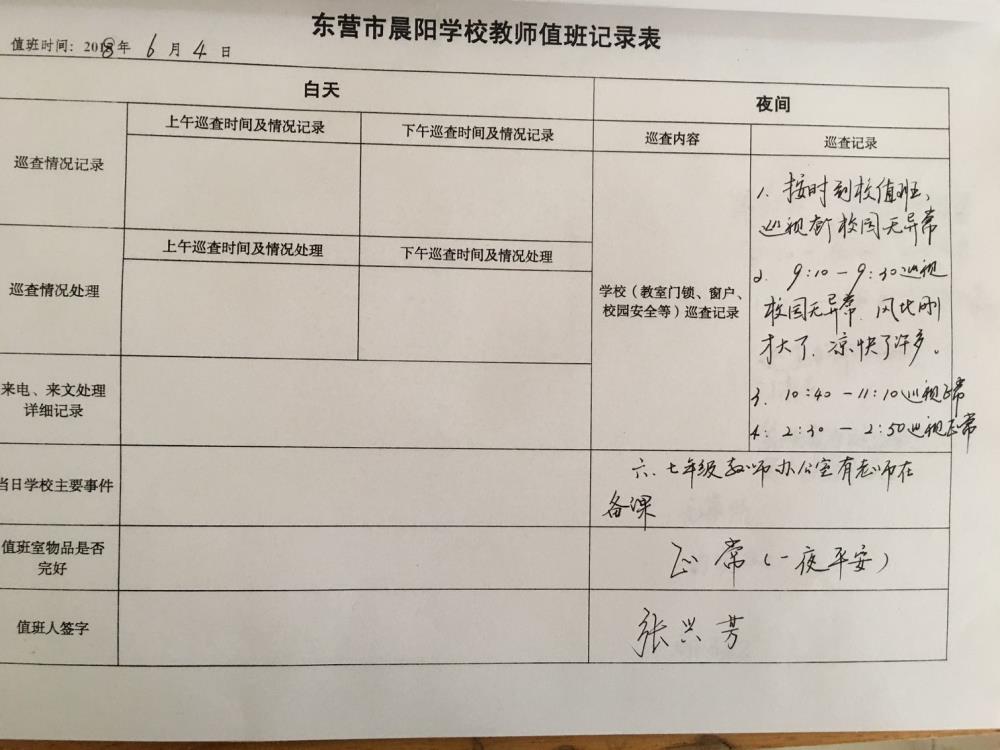 东营市晨阳学校教师值班记录表
值班时间：2018年 6 月 4 日
白天
夜间
上午巡查时间及情况记录
下午巡查时间及情况记录
巡查内容
巡查记录
巡查情况记录
1、按时到校值班，
巡视 校园无异常
2. 9:10－9:30巡视
校园无异常，风比刚
才大了，凉快了许多。
3. 10:40－11:10巡视正常
4: 2:30－2:50巡视正常
上午巡查时间及情况处理
下午巡查时间及情况处理
巡查情况处理
学校（教室门锁、窗户、
校园安全等）巡查记录
来电、来文处理
详细记录
当日学校主要事件
六、七年级教师办公室有老师在
备课
值班室物品是否
完好
正常（一夜平安）
值班人签字
张兴芳